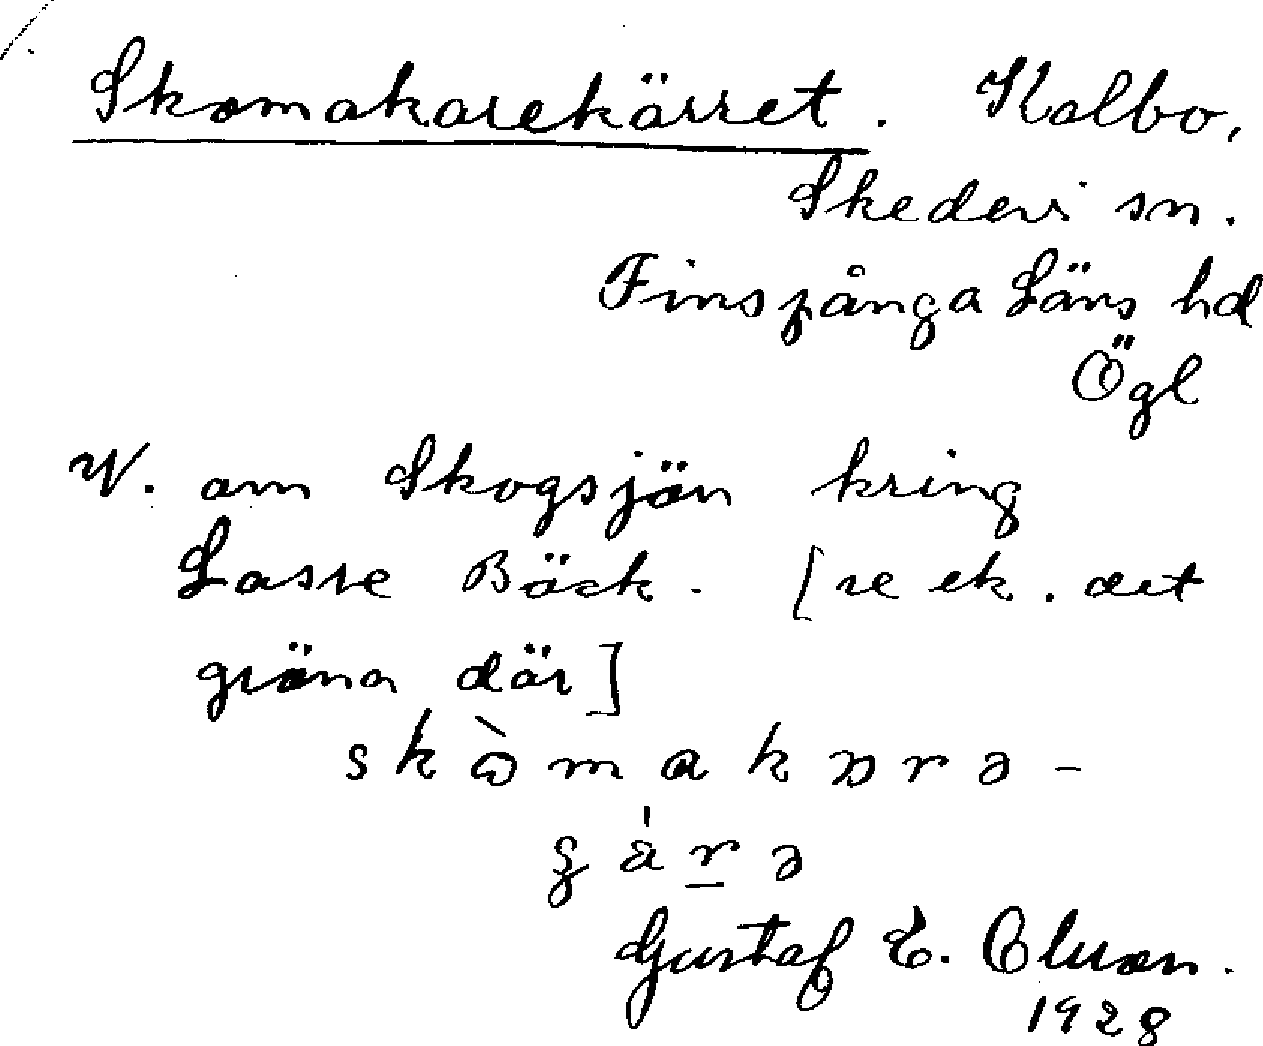 Skomakarekärret. Kalbo,
Skedevi sn.
Finspånga Läns hd
Ögl
N. om Skogsjön kring
Lasse Bäck. [se ek. det
gröna där]
skòmakɒrə-
gárə
Gustaf E. Olsson.
1928